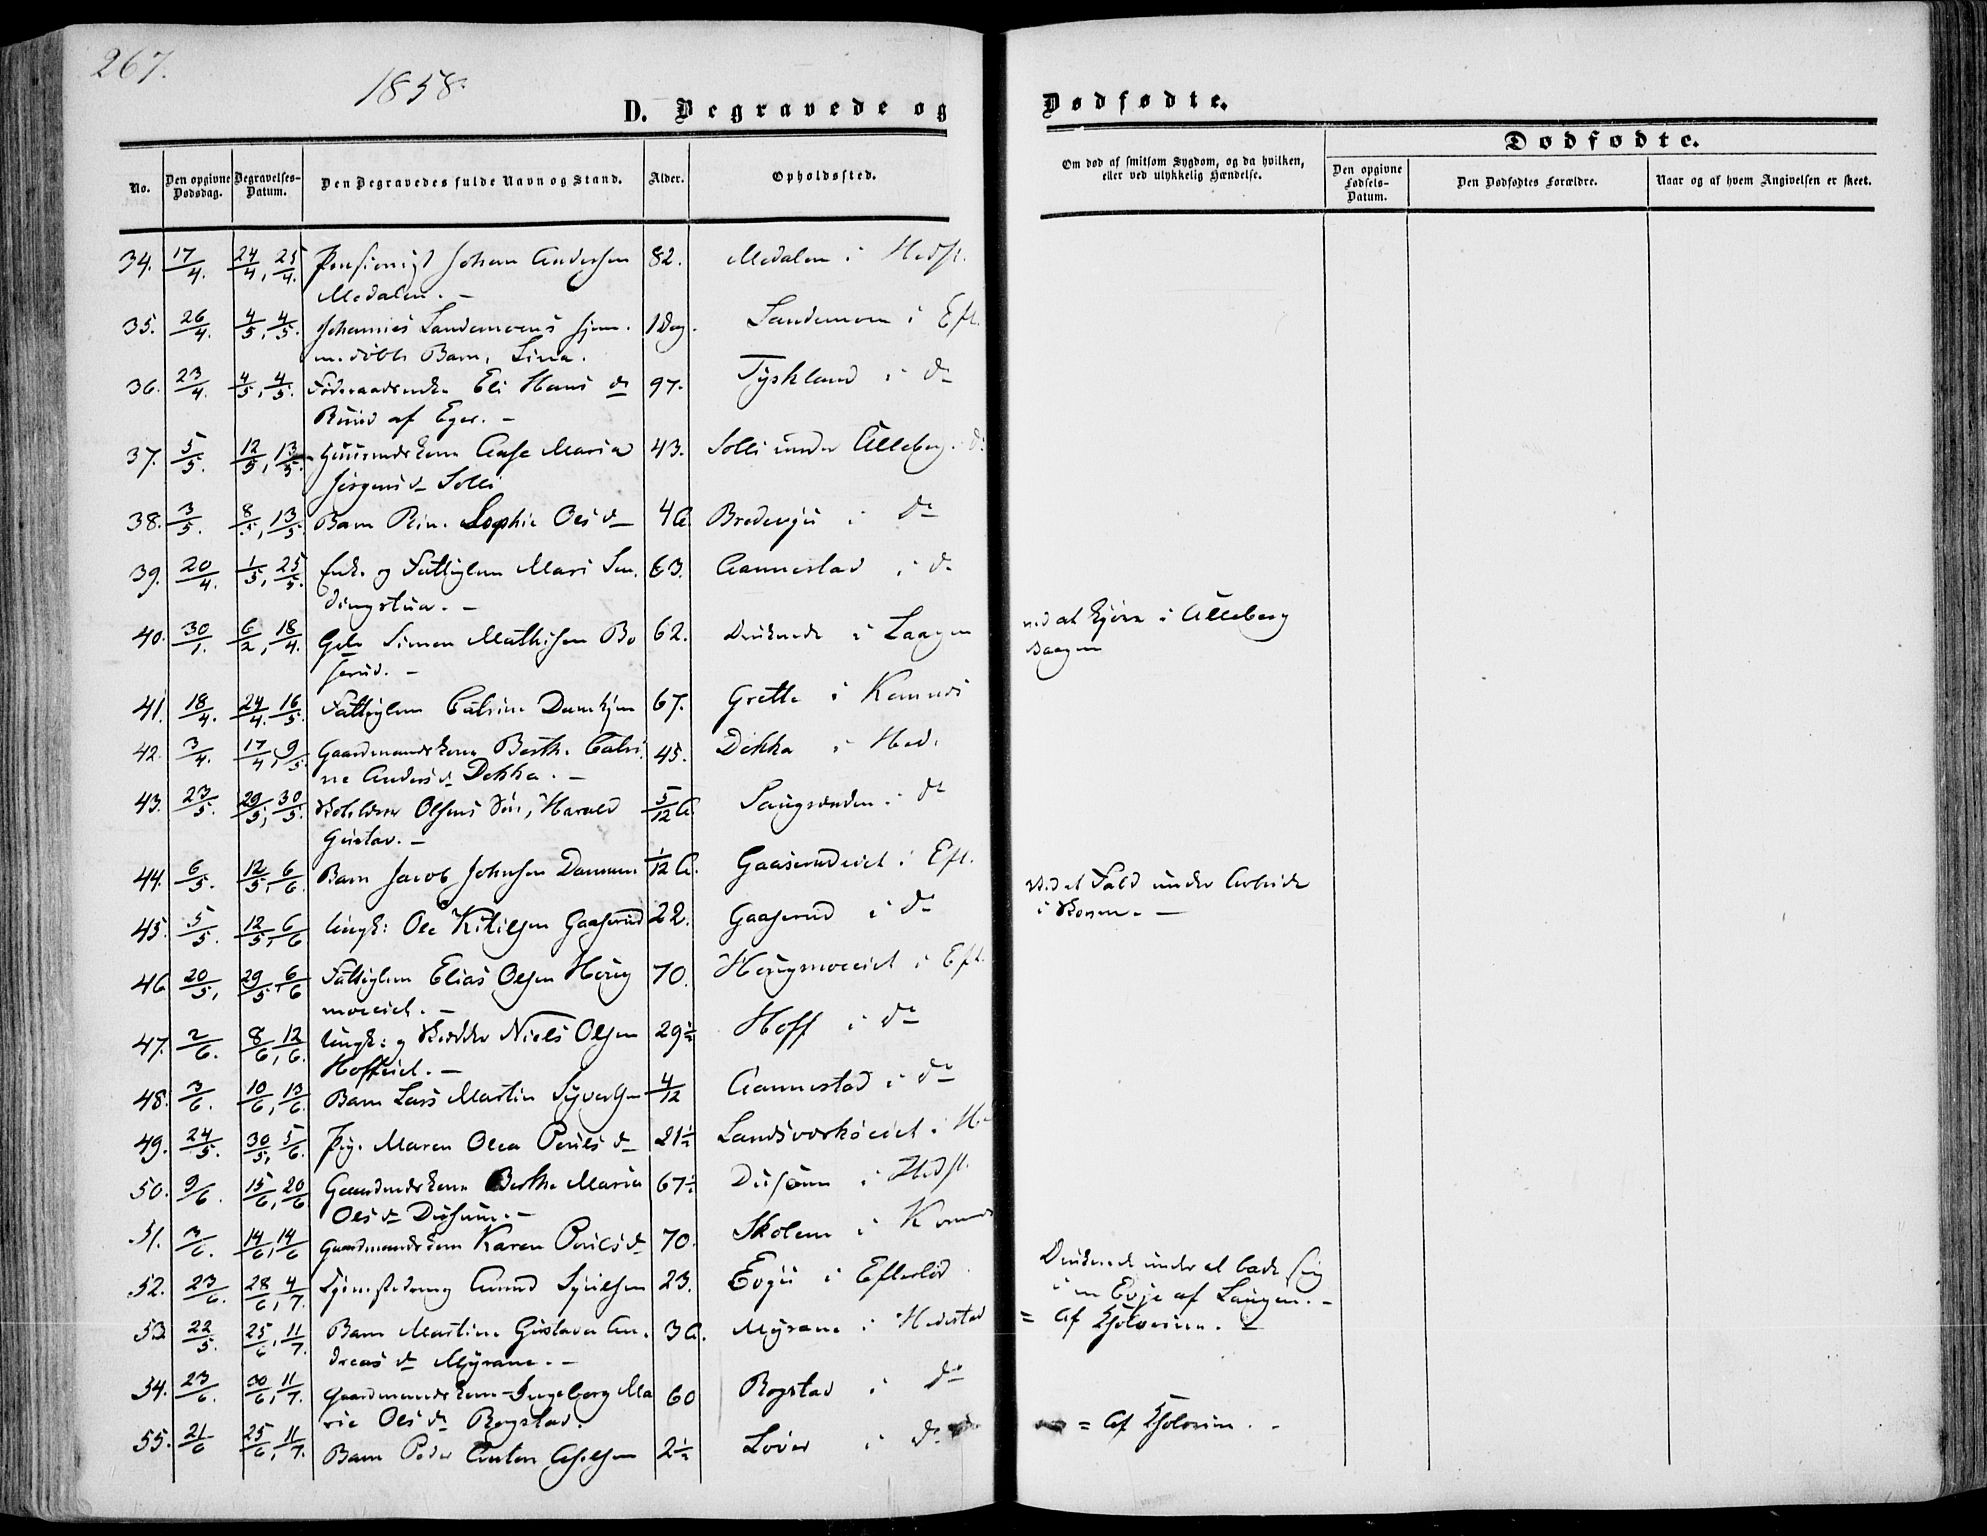 267.
1858.
D. Begravede og
Dødfødte.
No.
Den opgivne Dødsdag.
Begravelses-Datum.
Den Begravedes fulde Navn og Stand.
Alder.
Opholdssted.
Om død af smitsom Sygdom, og da hvilken, eller ved ulykkelig Hændelse.
Dødfødte.
Den opgivne Fødsels-Datum.
Den Dødfødtes Forældre.
Naar og af hvem Angivelsen er skeet.
34. 17/4. 24/4, 25/4. Pensionist Johan Andersen 82. Medalen i Hedst.
Medalen. —
35. 26/4. 4/5, 4/5. Johannes Landemoens hjem- 1 Dag. Landemoen i Eft.
m. døbte Barn, Lina.
36. 23/4. 4/5, 4/5. Føderaadsenke Eli Hans d 97. Tyskland i do
Ruud af Eger. —
37. 5/5. 12/5, 13/5. Huusmdskone Aase Maria 43. Solli under Ulleberg i do
Jørgens d Solli
38. 3/5. 8/5, 13/5. Barn Rin. Sophie Ols d 4 A. Bredevju i do
39. 20/4. 1/5, 25/5. Enke og Fattiglem Mari 63. Aannestad i do
40. 30/1. 6/2, 18/4. Simen Mathisen Bo 62. Druknede i Laagen ved at kjøre i Ulleberg
serud. — Laagen
41. 18/4. 24/4. 16/5. Fattiglem Catrine Damhjen 67. Grette i Komnes
42. 3/4. 17/4, 9/5. Gaardmandskone Berth. Catri- 45. Dokka i Hed.
ne Anders d. Dokka. —
43. 23/5. 29/5, 30/5. Olsens Søn, Harald 5/12 A. i do
Gustav. —
44. 6/5. 12/5, 6/6. Barn Jacob Johnsen 1/12 A. Gaaserudeiet i Eft.
45. 5/5. 12/5, 6/6 Ungk: Ole Kittilsen Gaaserud 22. Gaaserud i do Ved et Fald under Arbeide
i Skoven. —
46 20/5, 29/5, 6/6 Fattiglem Elias Olsen Houg 70. Hougmoeiet i Eft.
moeeiet. —
47. 2/6. 8/6, 12/6. Ungk: og Skrædder Niels Olsen 29½ Hoff i do
Hoffeiet. —
48. 3/6. 10/6, 13/6. Barn Lars Martin Syvers 4/12 Aannestad i do
49. 24/5. 30/5, 5/6. Pig. Maren Olea Pouls d 21½ Landsværkseiet i
50. 9/6. 15/6, 20/6 Gaardmdskone Berthe Maria 67½ i Hedst.
Ols d —
51. 3/6. 14/6, 14/6 Gaardmandskone Karen Pouls d 70. Skolem i Komnes
52. 23/6. 28/6, 4/7. 23. Evju i Eftelød. Druknede under at bade sig
i en Evje af Laugen. —
53. 22/5. 25/6, 11/7. Barn Martine Gustava An- 3 A. Myrane i Hedstad = Af Kjolerien.
dreas d Myrane. —
54. 23/6. 30/6, 11/7. Gaardmandskone Ingeborg Ma 60 Rogstad i do
rie Ols d Rogstad.
55. 21/6 25/6, 11/7. Barn Peder Anton 2½ Lover i do = Af Kjolerin. -